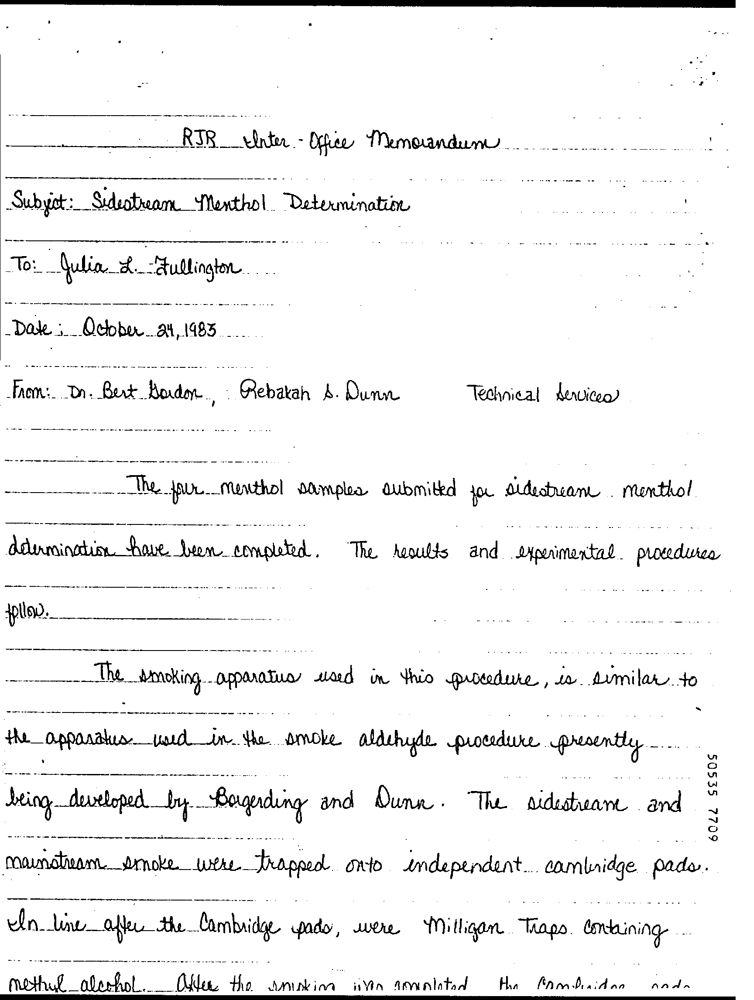 RJR Inter-Office Memorandum
Subject: Sidestream Menthol Determination
To: Julia L. Fullington
Date: October 24, 1983
From: Dr. Bert Gordon, Rebakah S. Dunn Technical Services
The four menthol samples submitted for sidestream menthol
determination have been completed. The results and experimental procedures
follow.
The smoking apparatus used in this procedure, is similar to
the apparatus used in the smoke aldehyde procedure presently
being developed by Borgerding and Dunn. The sidestream and
mainstream smoke were trapped onto independent cambridge pads.
In line after the Cambridge pads, were Milligan Traps containing
methyl alcohol. After the smoking was completed the Cambridge pads
50535 7709